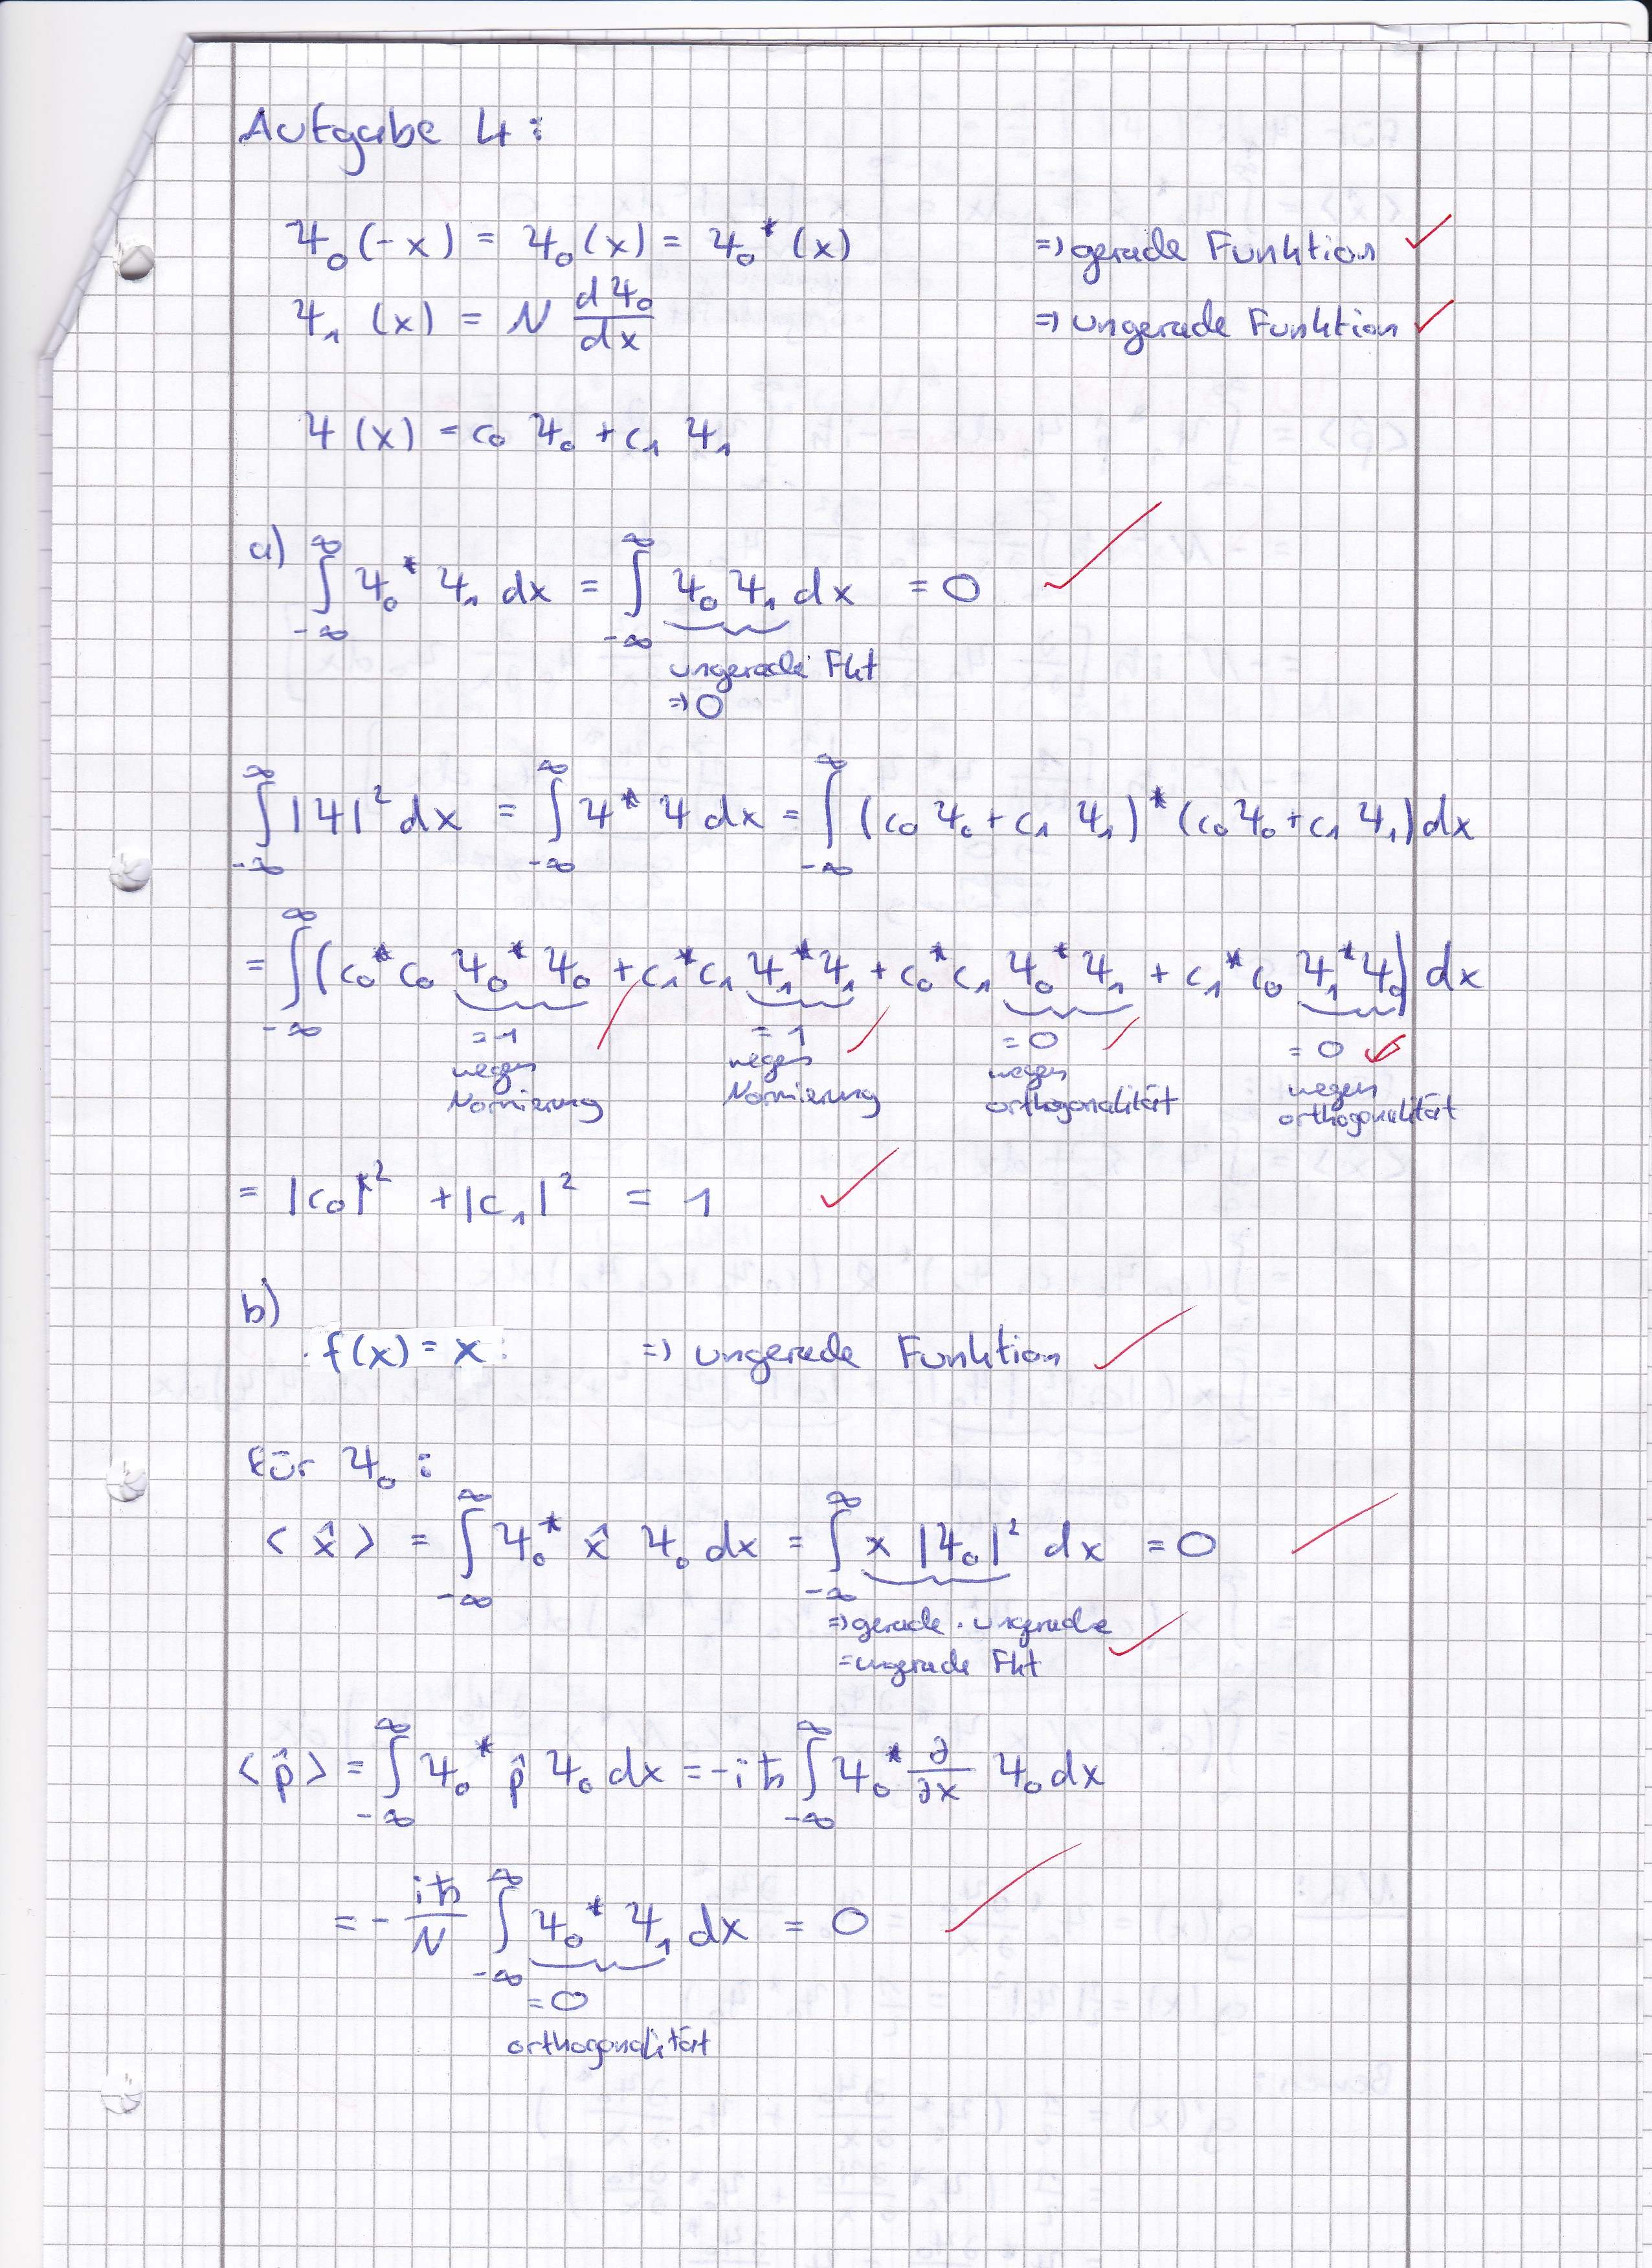 Aufgabe 4:
Ψ₀(-x) = Ψ₀(x) = Ψ₀*(x) ⇒ gerade Funktion ✓
Ψ₁(x) = N dΨ₀/dx ⇒ ungerade Funktion ✓
Ψ(x) = c₀ Ψ₀ + c₁ Ψ₁
a) ∫_{-∞}^{∞} Ψ₀* Ψ₁ dx = ∫_{-∞}^{∞} Ψ₀ Ψ₁ dx = 0 ✓
ungerade Fkt
⇒ 0
∫_{-∞}^{∞} |Ψ|² dx = ∫_{-∞}^{∞} Ψ* Ψ dx = ∫_{-∞}^{∞} (c₀ Ψ₀ + c₁ Ψ₁)* (c₀ Ψ₀ + c₁ Ψ₁) dx
= ∫_{-∞}^{∞} (c₀* c₀ Ψ₀* Ψ₀ + c₁* c₁ Ψ₁* Ψ₁ + c₀* c₁ Ψ₀* Ψ₁ + c₁* c₀ Ψ₁* Ψ₀) dx
= 1 = 1 = 0 = 0 ✓
wegen wegen wegen wegen
Normierung Normierung orthogonalität orthogonalität
= |c₀|² + |c₁|² = 1 ✓
b)
f(x) = x : ⇒ ungerade Funktion ✓
Für Ψ₀ :
⟨x̂⟩ = ∫_{-∞}^{∞} Ψ₀* x̂ Ψ₀ dx = ∫_{-∞}^{∞} x |Ψ₀|² dx = 0
⇒ gerade · ungerade
= ungrade Fkt ✓
⟨p̂⟩ = ∫_{-∞}^{∞} Ψ₀* p̂ Ψ₀ dx = -iħ ∫_{-∞}^{∞} Ψ₀* ∂/∂x Ψ₀ dx
= - iħ/N ∫_{-∞}^{∞} Ψ₀* Ψ₁ dx = 0 ✓
= 0
orthogonalität